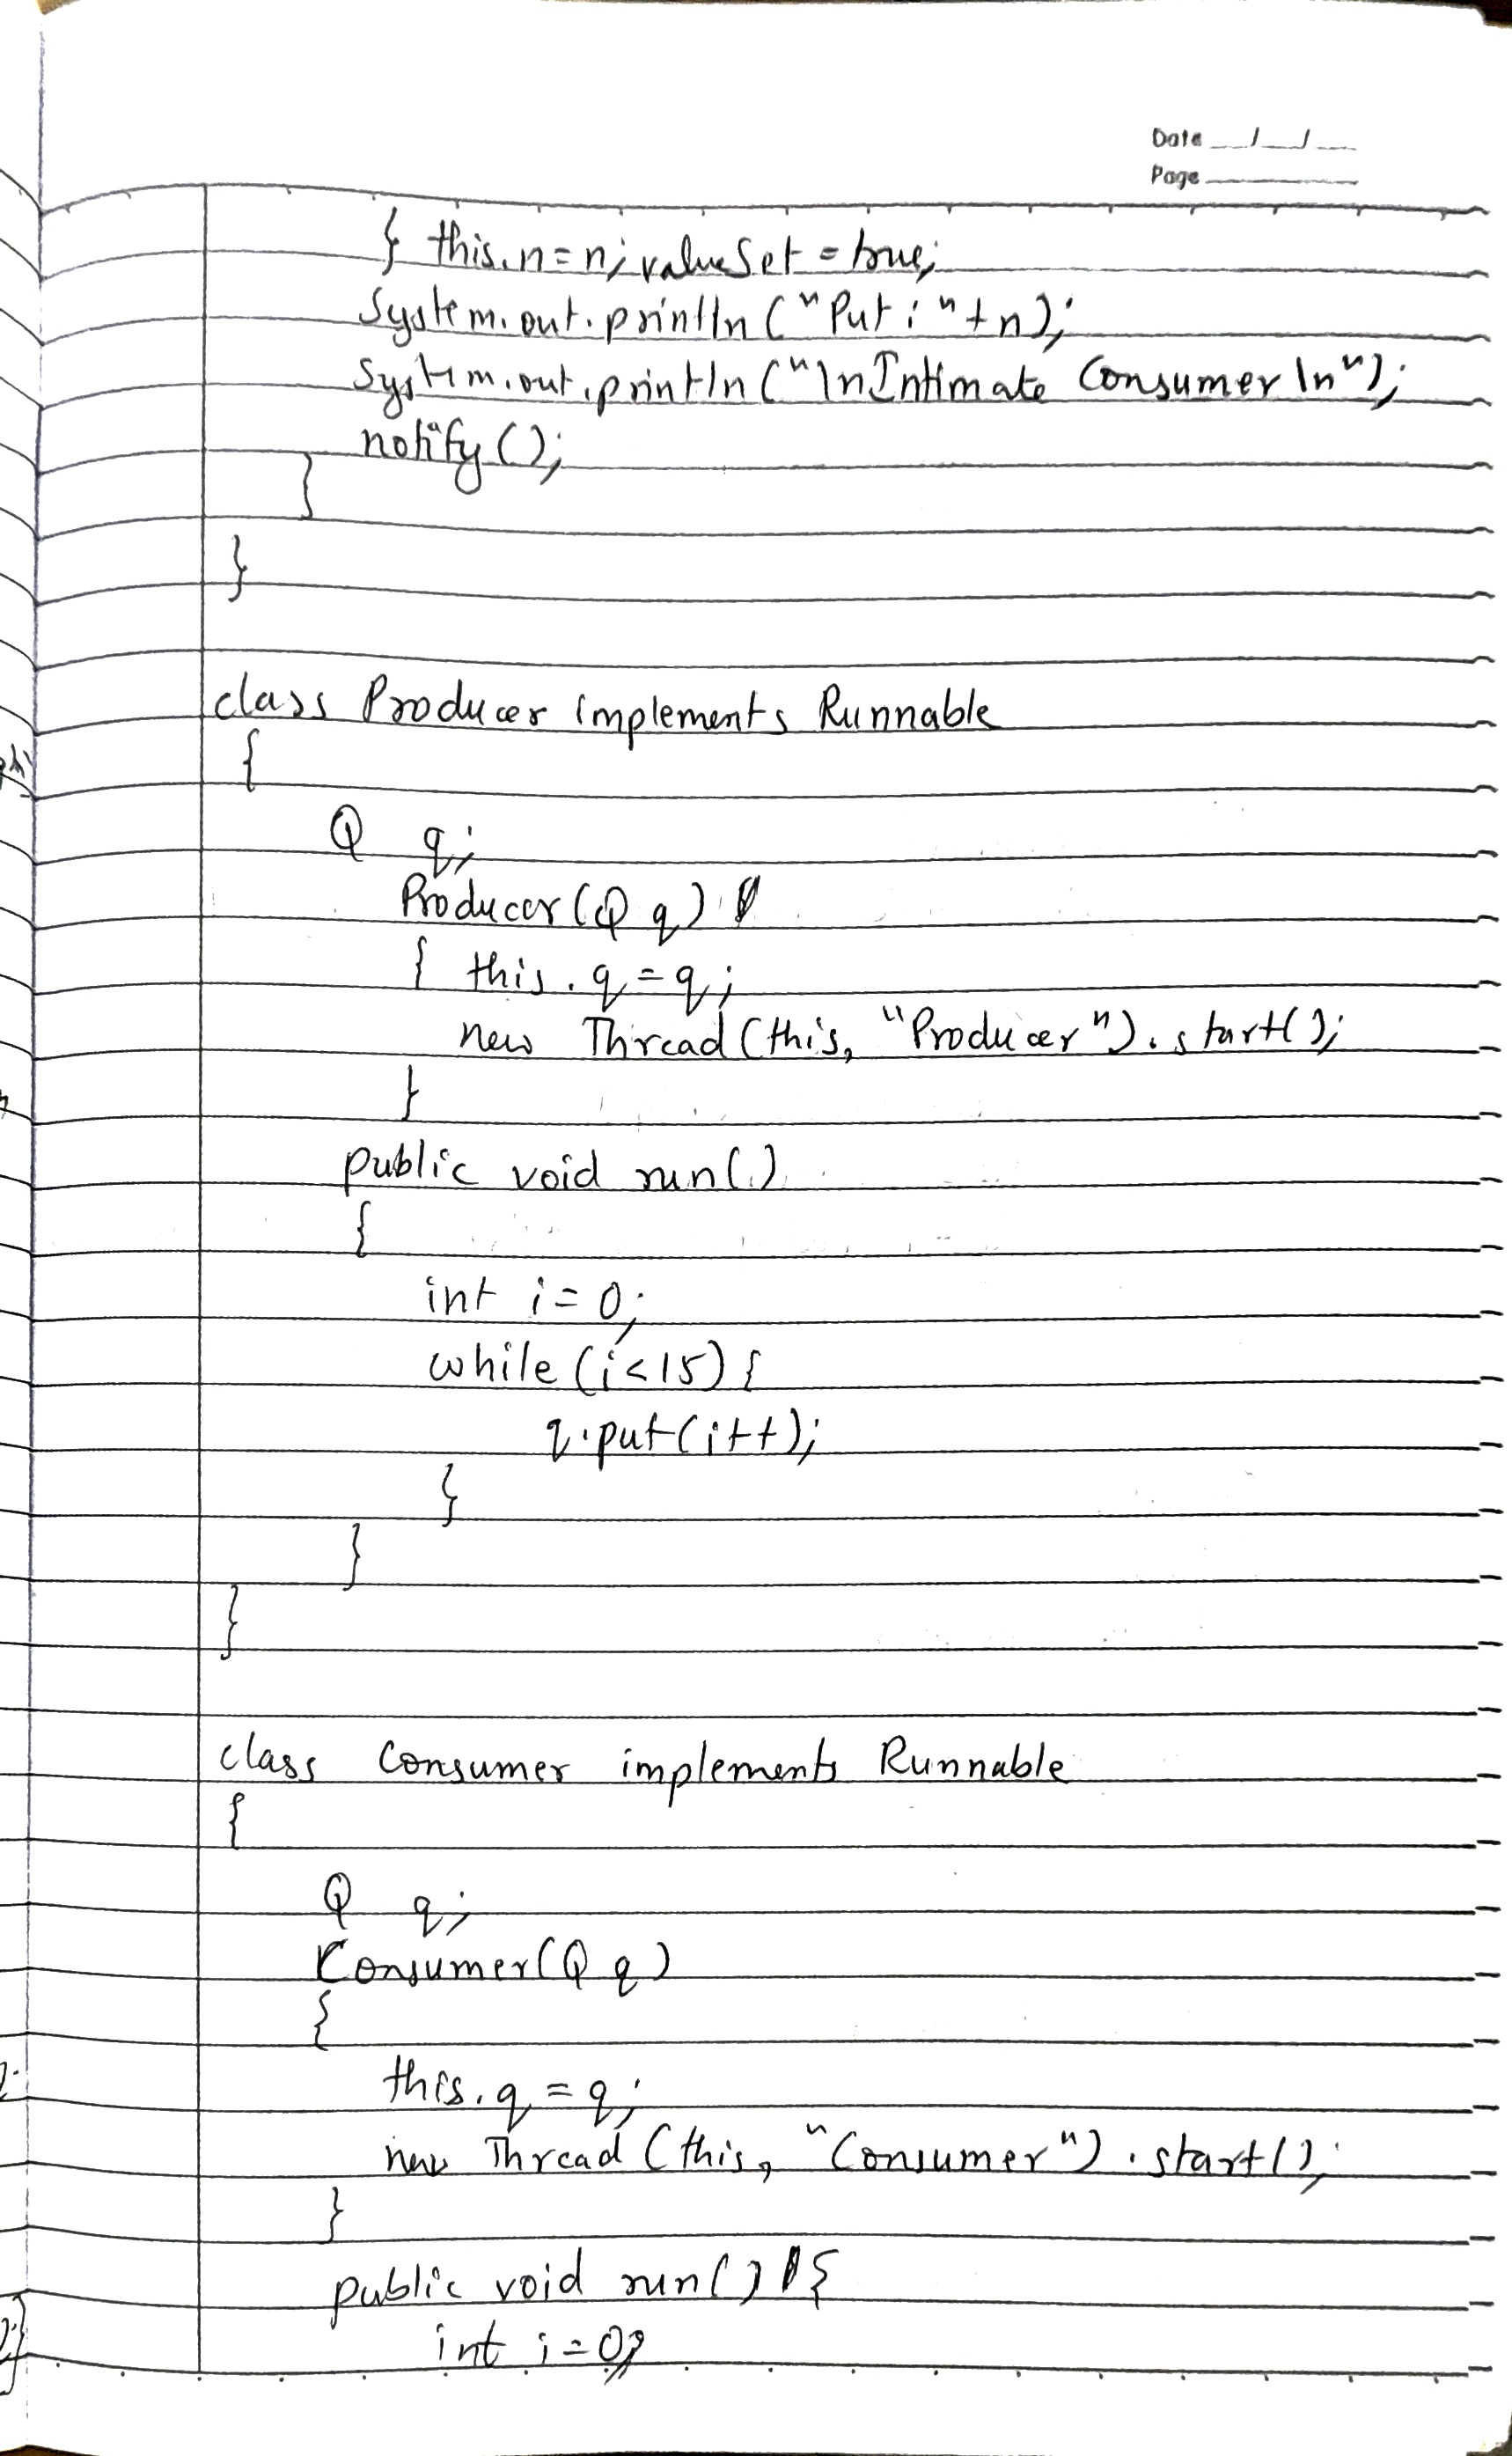 Date __/__/__
Page ______
} this.n=n; valueSet = true;
System.out.println("Put : "+n);
System.out.println("\nIntimate Consumer \n");
notify();
}
}
class Producer implements Runnable
{
Q q;
Producer(Q q)
{ this.q=q;
new Thread(this, "Producer").start();
}
public void run()
{
int i=0;
while (i<15) {
q.put(i++);
}
}
}
class Consumer implements Runnable
{
Q q;
Consumer(Q q)
{
this.q=q;
new Thread (this, "Consumer").start();
}
public void run() {
int i=0;